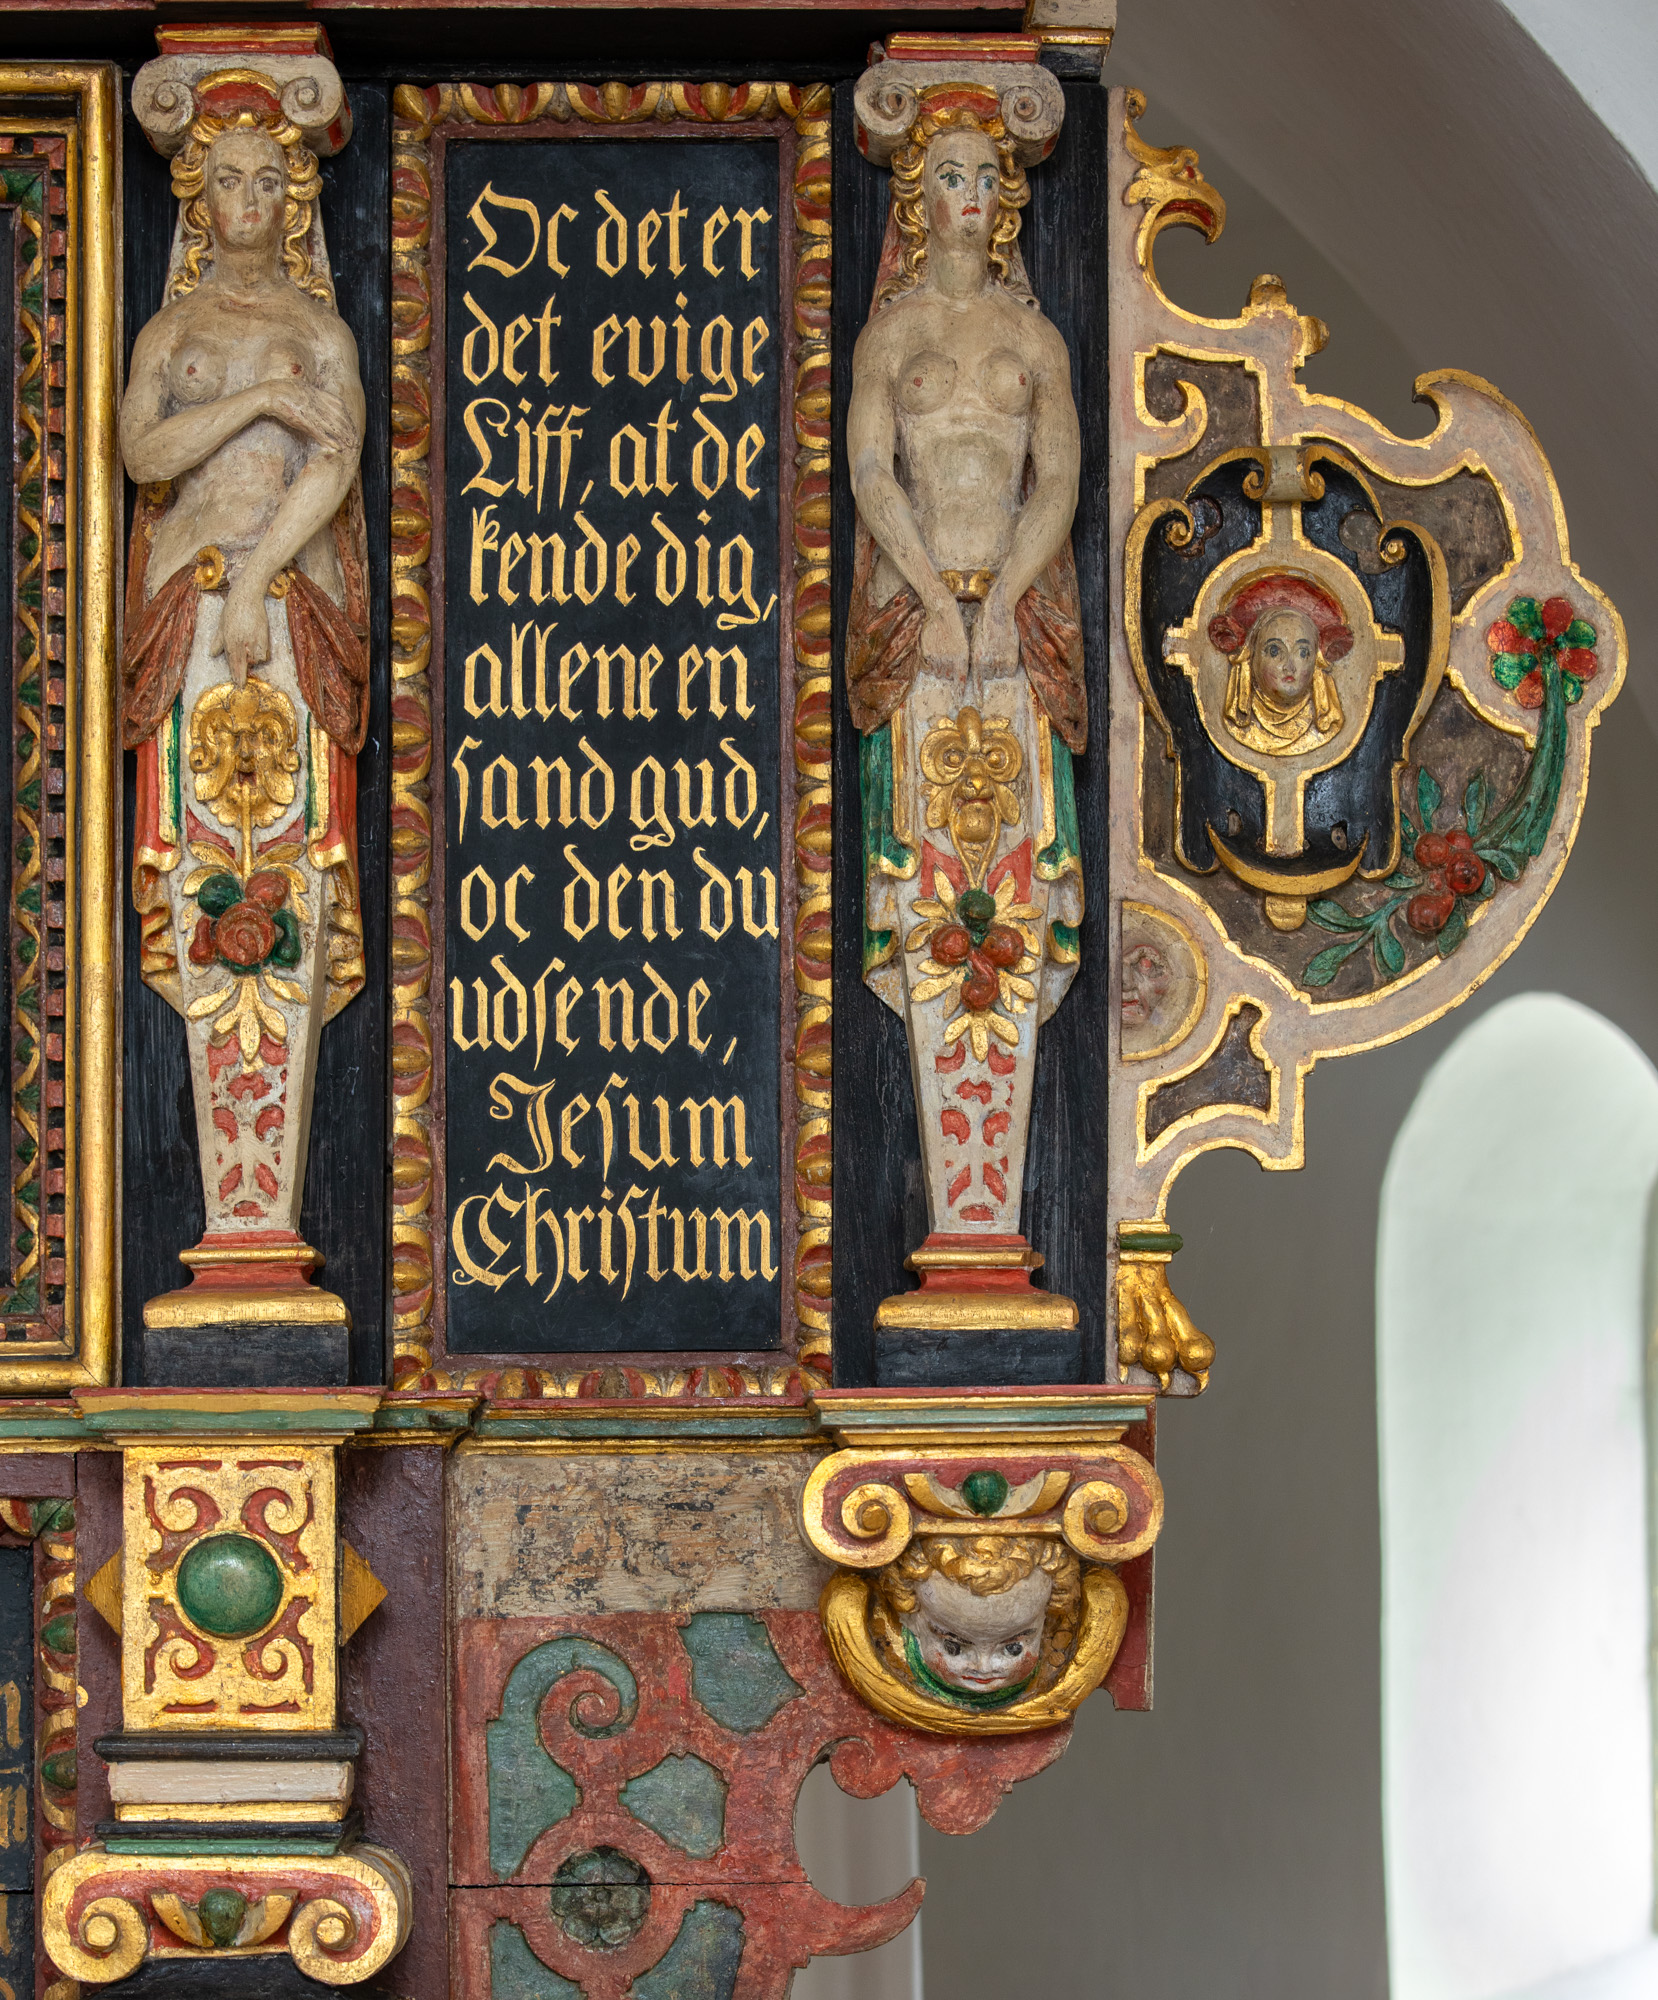 Oc det er
det evige
Liff, at de
kende dig,
allene en
sand gud,
oc den du
udsende,
Jesum
Christum